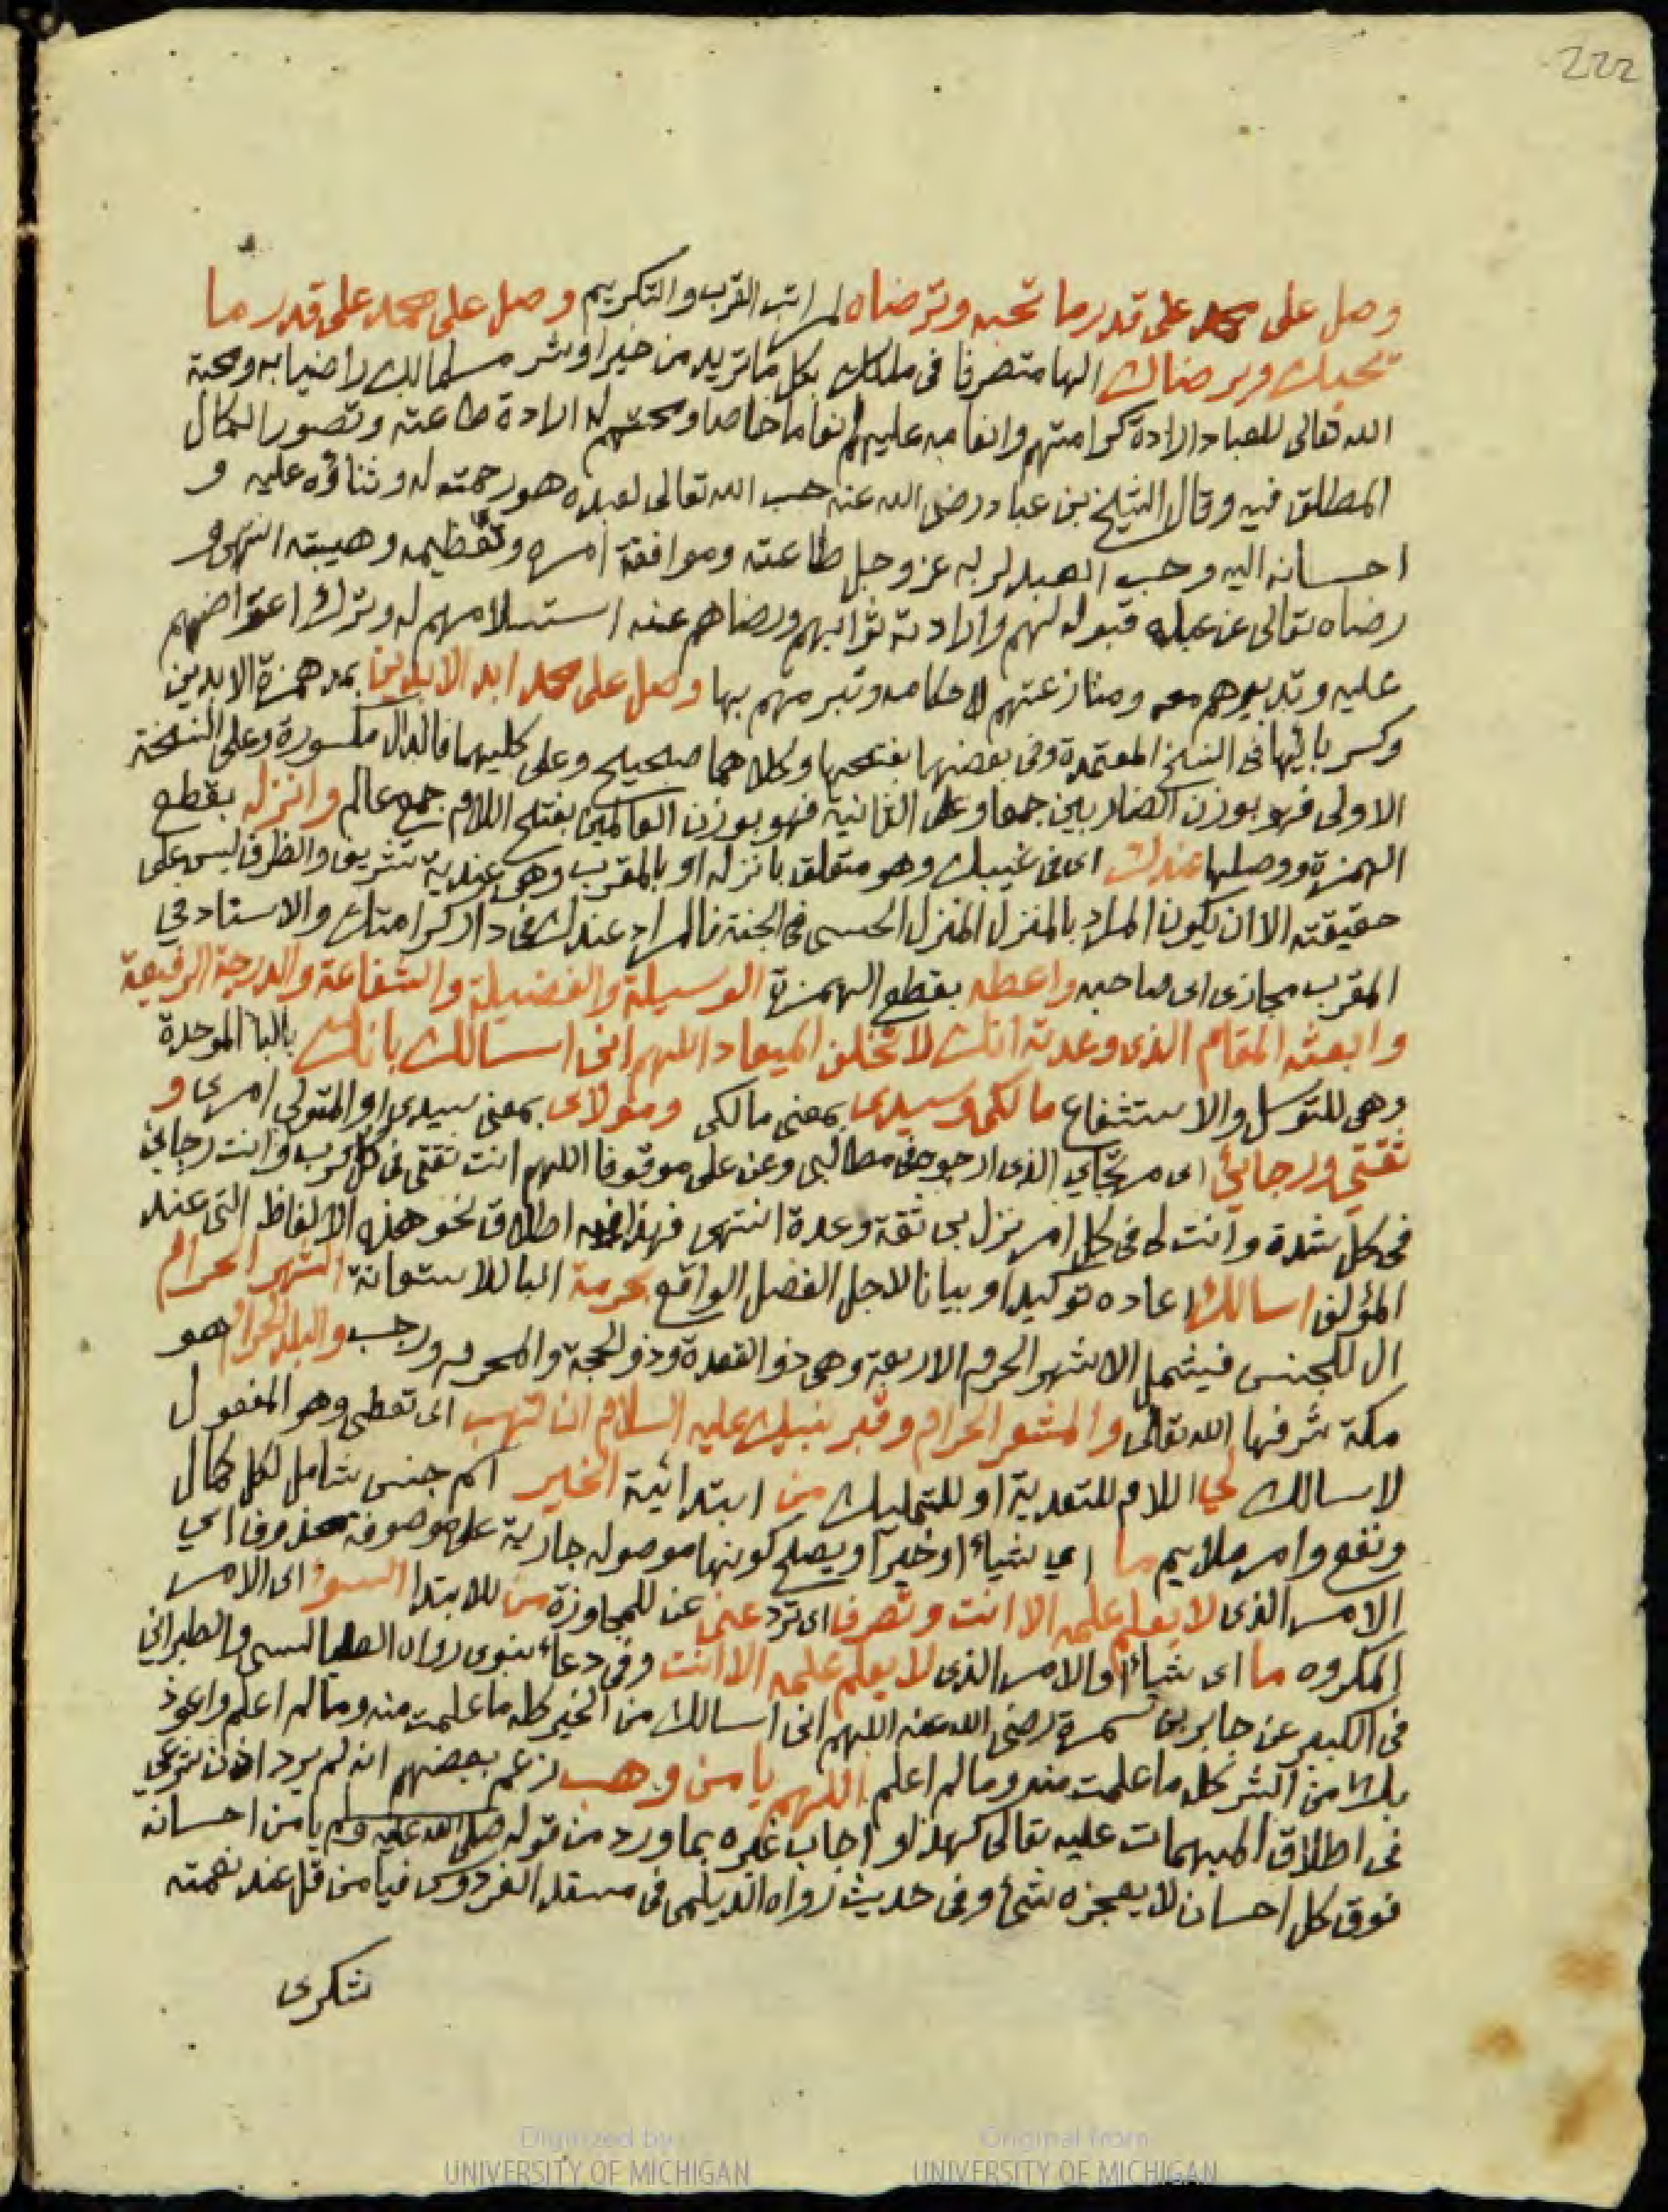 222
وصل على محمد على قدر ما تحبه وترضاه لمراتب القرب والتكريم وصل على محمد على قدر ما
تحبك ويرضاك الها متصرفا فى ملكك بكل ما تريد من خير او شر مسلما لك راضيا به ومحبة
الله تعالى للعباد ارادة كرامتهم وانعامه عليهم انعاما خاصا ومحبتهم له ارادة طاعته وتصور الكمال
المطلق فيه وقال الشيخ بن عباد رضى الله عنه حب الله تعالى لعبده هو رحمته له وثناؤه عليه و
احسانه اليه وحب العبد لربه عز وجل طاعته وموافقة امره وتعظيمه وهيبته انتهى و
رضاه تعالى عن عبده قبوله لهم وارادته ثوابهم ورضاهم عنه استسلامهم له وترك اعتراضهم
عليه وتدبيرهم معه ومنازعتهم لاحكامه وتبرمهم بها وصل على محمد ابد الابدين بمد همزة الابدين
وكسر بائيها فى النسخ المعتمدة وفى بعضها بفتحها وكلاهما صحيح وعلى كليهما فالدال مكسورة وعلى النسخة
الاولى فهو بوزن الضاربين جمعا وعلى الثانية فهو بوزن العالمين بفتح اللام جمع عالم وانزله بقطع
الهمزة ووصلها عندك اى فى غيبك وهو متعلق بانزله او بالمقرب وهى عندية تشريف والظرف ليس على
حقيقته الا ان يكون المراد بالمنزل المنزل الحسى فى الجنة فالمراد عندك فى دار كرامتك والاسناد في
المقرب مجازى اى صاحبه واعطه بقطع الهمزة الوسيلة والفضيلة والشفاعة والدرجة الرفيعة
وابعثه المقام الذى وعدته انك لا تخلف الميعاد اللهم انى اسالك بانك بالبا الموحدة
وهى للتوسل والاستشفاع مالكى وسيدى بمعنى مالكى ومولاى بمعنى سيدى او المتولى امرى و
ثقتي ورجائي اى مرتجاي الذى ارجوه فى مطالبى وعن على موقوفا اللهم انت ثقتى فى كل كرب وانت رجائي
فى كل شدة وانت لى فى كل امر نزل بى ثقة وعدة انتهى فهذا فيه اطلاق نحو هذه الالفاظ التى عند
المؤلف اسالك اعاده توكيدا وبيانا لاجل الفصل الواقع بحرمة البا للاستعانة الشهر الحرام
ال للجنس فيشمل الاشهر الحرم الاربعة وهى ذو القعدة وذو الحجة والمحرم ورجب والبلد الحرام هو
مكة شرفها الله تعالى والمشعر الحرام وقبر نبيك عليه السلام ان تهب اى تعطى وهو المفعول
لاسالك لي اللام للتعدية او للتمليك من ابتدائية الخير اسم جنس شامل لكل كمال
ونفع وامر ملايم ما اي شياء او خيرا ويصلح كونها موصوله جارية على موصوفة محذوفا اي
الامر الذى لا يعلم علمه الا انت وتصرف اى ترد عني عن للمجاوزة من للابتدا السوء اى الامر
المكروه ما اى شياء او الامر الذى لا يعلم علمه الا انت وفى دعاء نبوى رواه الطيالسى والطبرانى
فى الكبير عن جابر بن سمرة رضى الله عنه اللهم انى اسالك من الخير كله ما علمت منه وما لم اعلم واعوذ
بك من الشر كله ما علمت منه وما لم اعلم اللهم يا من وهب زعم بعضهم انه لم يرد اذن شرعي
فى اطلاق المبهمات عليه تعالى كهذا واجاب غيره بما ورد من قوله صلى الله عليه وسلم يا من احسانه
فوق كل احسان لا يعجزه شئ وفى حديث رواه الديلمى فى مسند الفردوس فيا من قل عند نعمته
شكرى
Digitized by
UNIVERSITY OF MICHIGAN
Original from
UNIVERSITY OF MICHIGAN